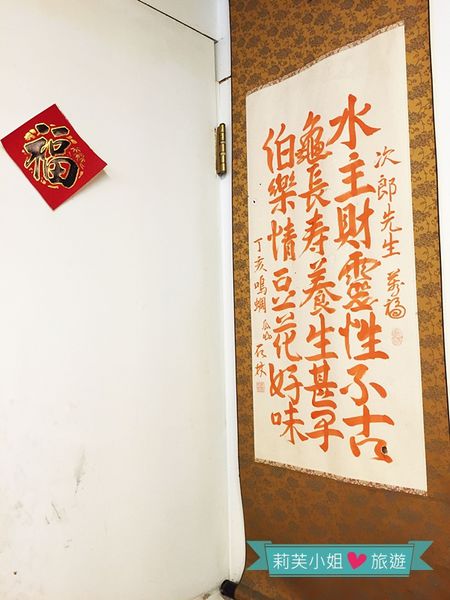 福
次郎先生 萬福
水主財靈性不古
龜長寿養生甚早
伯樂情豆花好味
丁亥鳴蜩
莉芙小姐 旅遊